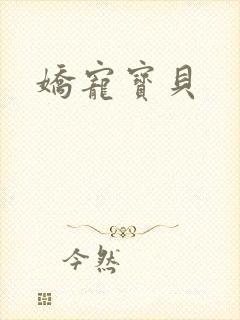 嬌寵寶貝
今然